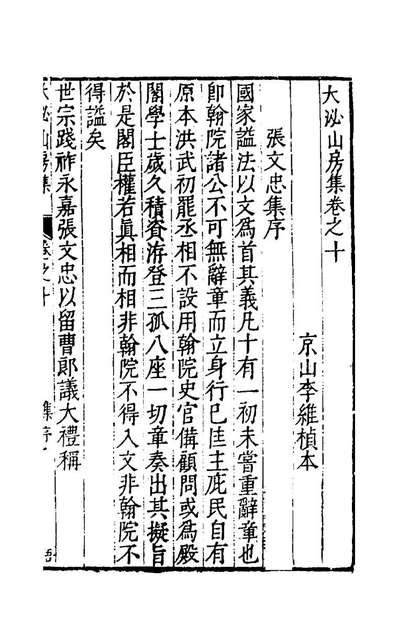 大泌山房集卷之十
京山李維楨本
張文忠集序
國家諡法以文爲首其義凡十有一初未嘗重辭章也
卽翰院諸公不可無辭章而立身行已匡主庇民自有
原本洪武初罷丞相不設用翰院史官備顧問或爲殿
閣學士歲久積資洊登三孤八座一切章奏出其擬旨
於是閣臣權若眞相而相非翰院不得入文非翰院不
得諡矣
世宗踐祚永嘉張文忠以留曹郎議大禮稱
大泌山房集
卷之十
集序一